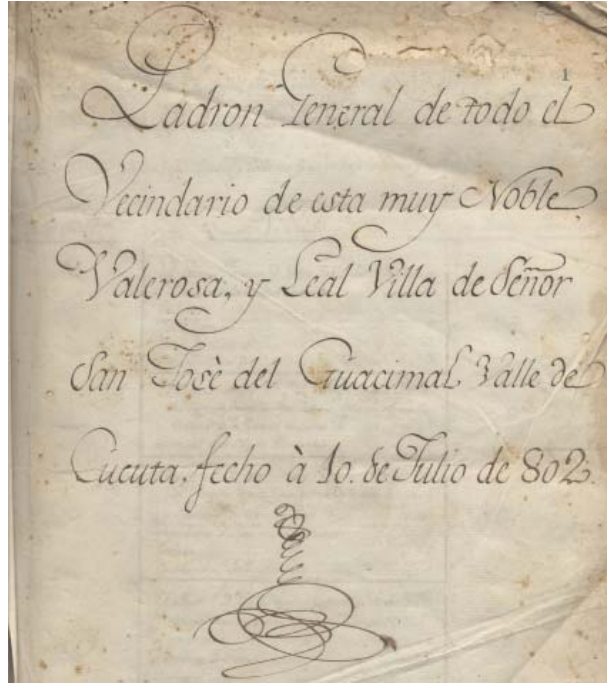 1
Padron General de todo el
Vecindario de esta muy Noble,
Valerosa, y Leal Villa de Señor
San Josè del Guacimal Valle de
Cucuta. fecho à 10. de Julio de 802.